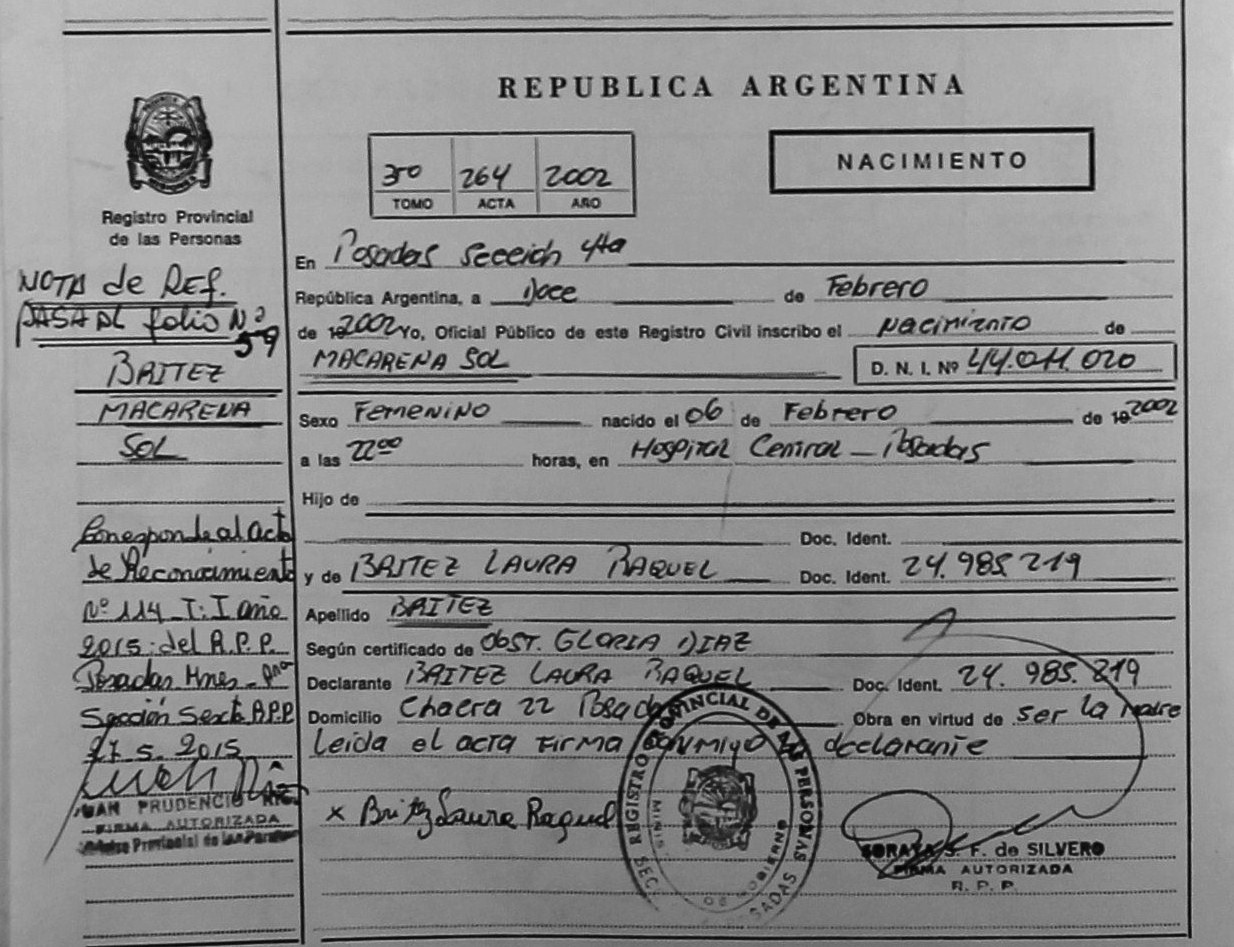 REPUBLICA ARGENTINA
NACIMIENTO
264 2002
TOMO ACTA AÑO
Registro Provincial
de las Personas
NOTA de REF.
PASA AL folio Nº
59
BRITEZ
MACARENA
SOL
Corresponde al acta
de Reconocimiento
Nº 114 T: I año
2015 del R.P.P.
Posadas Mnes
Sección Sexta R.P.P
27 5 2015
JUAN PRUDENCIO
FIRMA AUTORIZADA
Registro Provincial de las Personas
En Posadas Sección 4ta
República Argentina, a Doce de Febrero
de 192002 Yo, Oficial Público de este Registro Civil inscribo el Nacimiento de
MACARENA SOL D. N. I. Nº 44.011.020
Sexo FEMENINO nacido el 06 de Febrero de 192002
a las 22 00 horas, en Hospital Central - Posadas
Hijo de
Doc. Ident.
y de BRITEZ LAURA RAQUEL Doc. Ident. 24.985.219
Apellido BRITEZ
Según certificado de Obst. GLORIA DIAZ
Declarante BRITEZ LAURA RAQUEL Doc. Ident. 24.985.219
Domicilio Chacra 22 Posadas Obra en virtud de ser la Madre
Leida el acta firma conmigo la declarante
x Britez Laura Raquel
REGISTRO PROVINCIAL DE LAS PERSONAS
DE GOBIERNO
SORAYA S. F. de SILVERO
FIRMA AUTORIZADA
R. P. P.